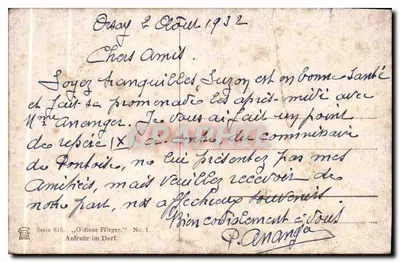 Orsay 2 Août 1932
Chers Amis.
Soyez tranquilles, Suzon est en bonne Santé
et fait sa promenade les après-midi avec
Mme Ananger. Je vous ai fait un point
de repère X
de Pontoise, ne lui présentez pas mes
Amitiés, mais veuillez recevoir de
notre part, nos affectueux souvenirs.
Bien cordialement à vous
P. Ananger
Serie 815. „O diese Flieger.“ No. 1.
Aufruhr im Dorf.